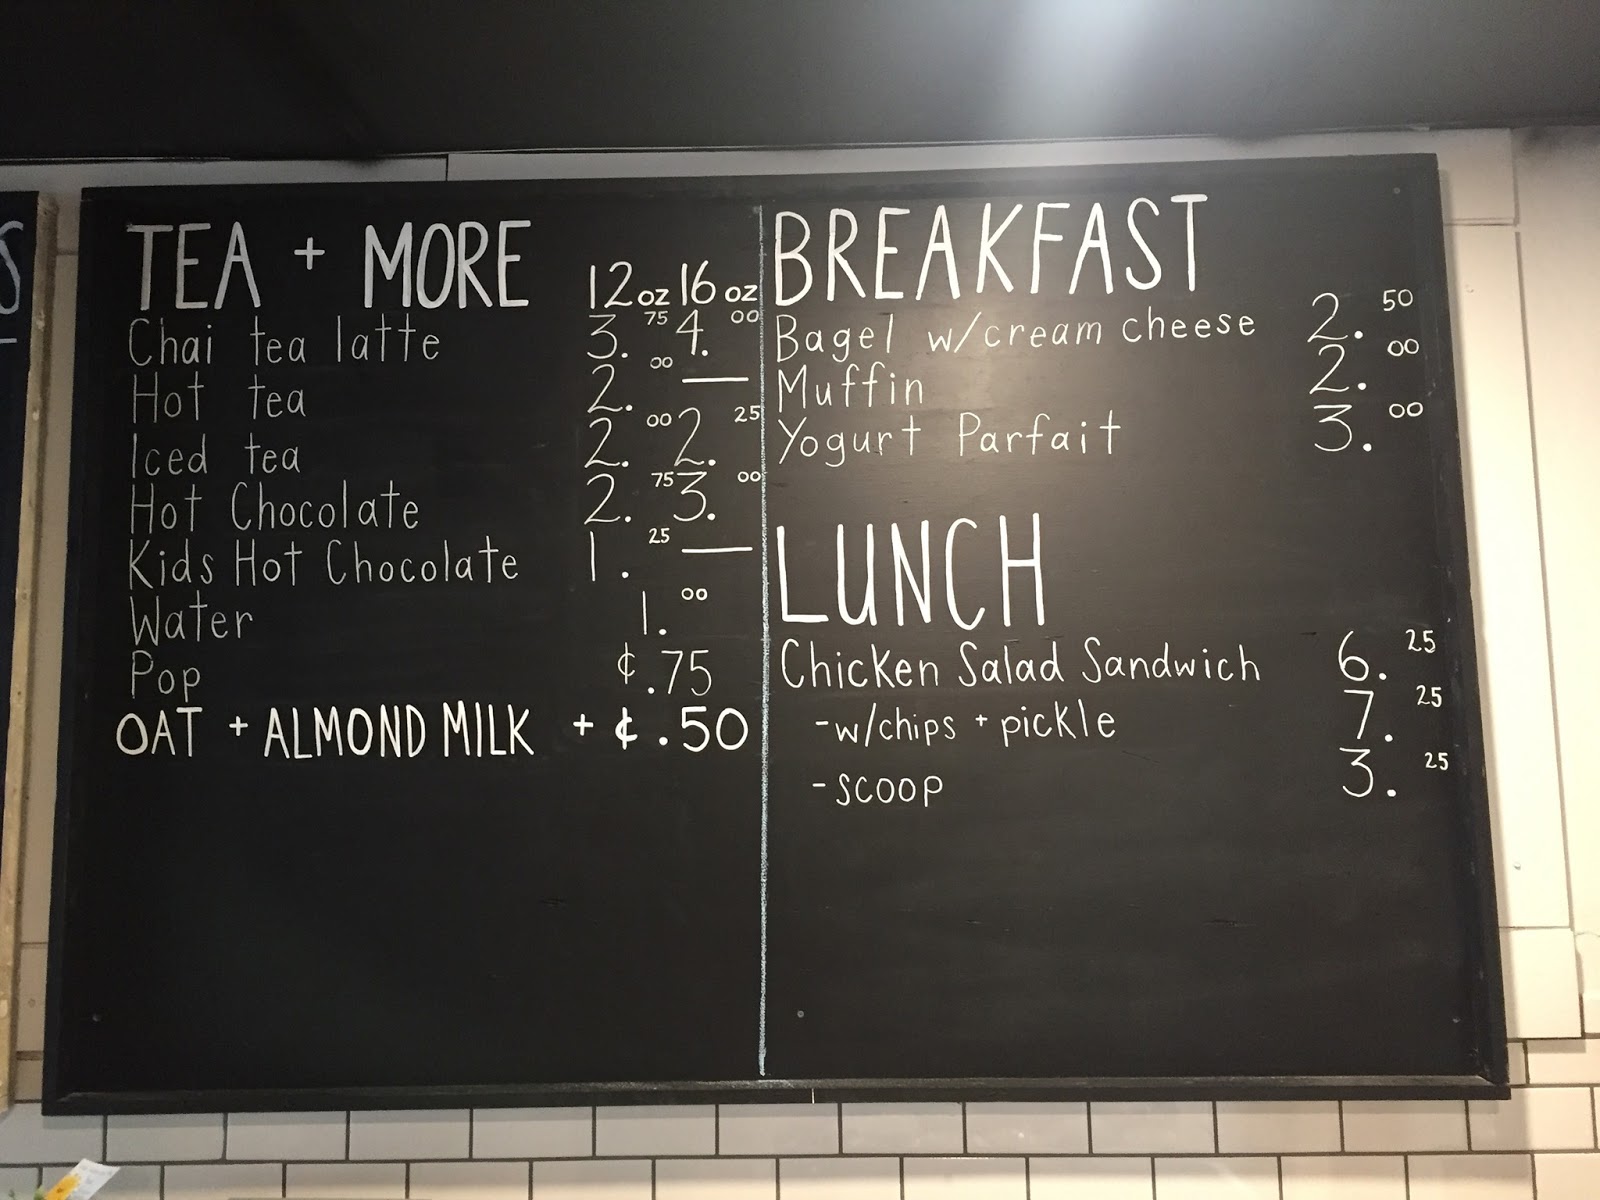 TEA + MORE 12oz 16oz
Chai tea latte 3.75 4.00
Hot tea 2.00 —
Iced tea 2.00 2.25
Hot Chocolate 2.75 3.00
Kids Hot Chocolate 1.25 —
Water 1.00
Pop ¢.75
OAT + ALMOND MILK + ¢.50
BREAKFAST
Bagel w/cream cheese 2.50
Muffin 2.00
Yogurt Parfait 3.00
LUNCH
Chicken Salad Sandwich 6.25
-w/chips + pickle 7.25
-scoop 3.25